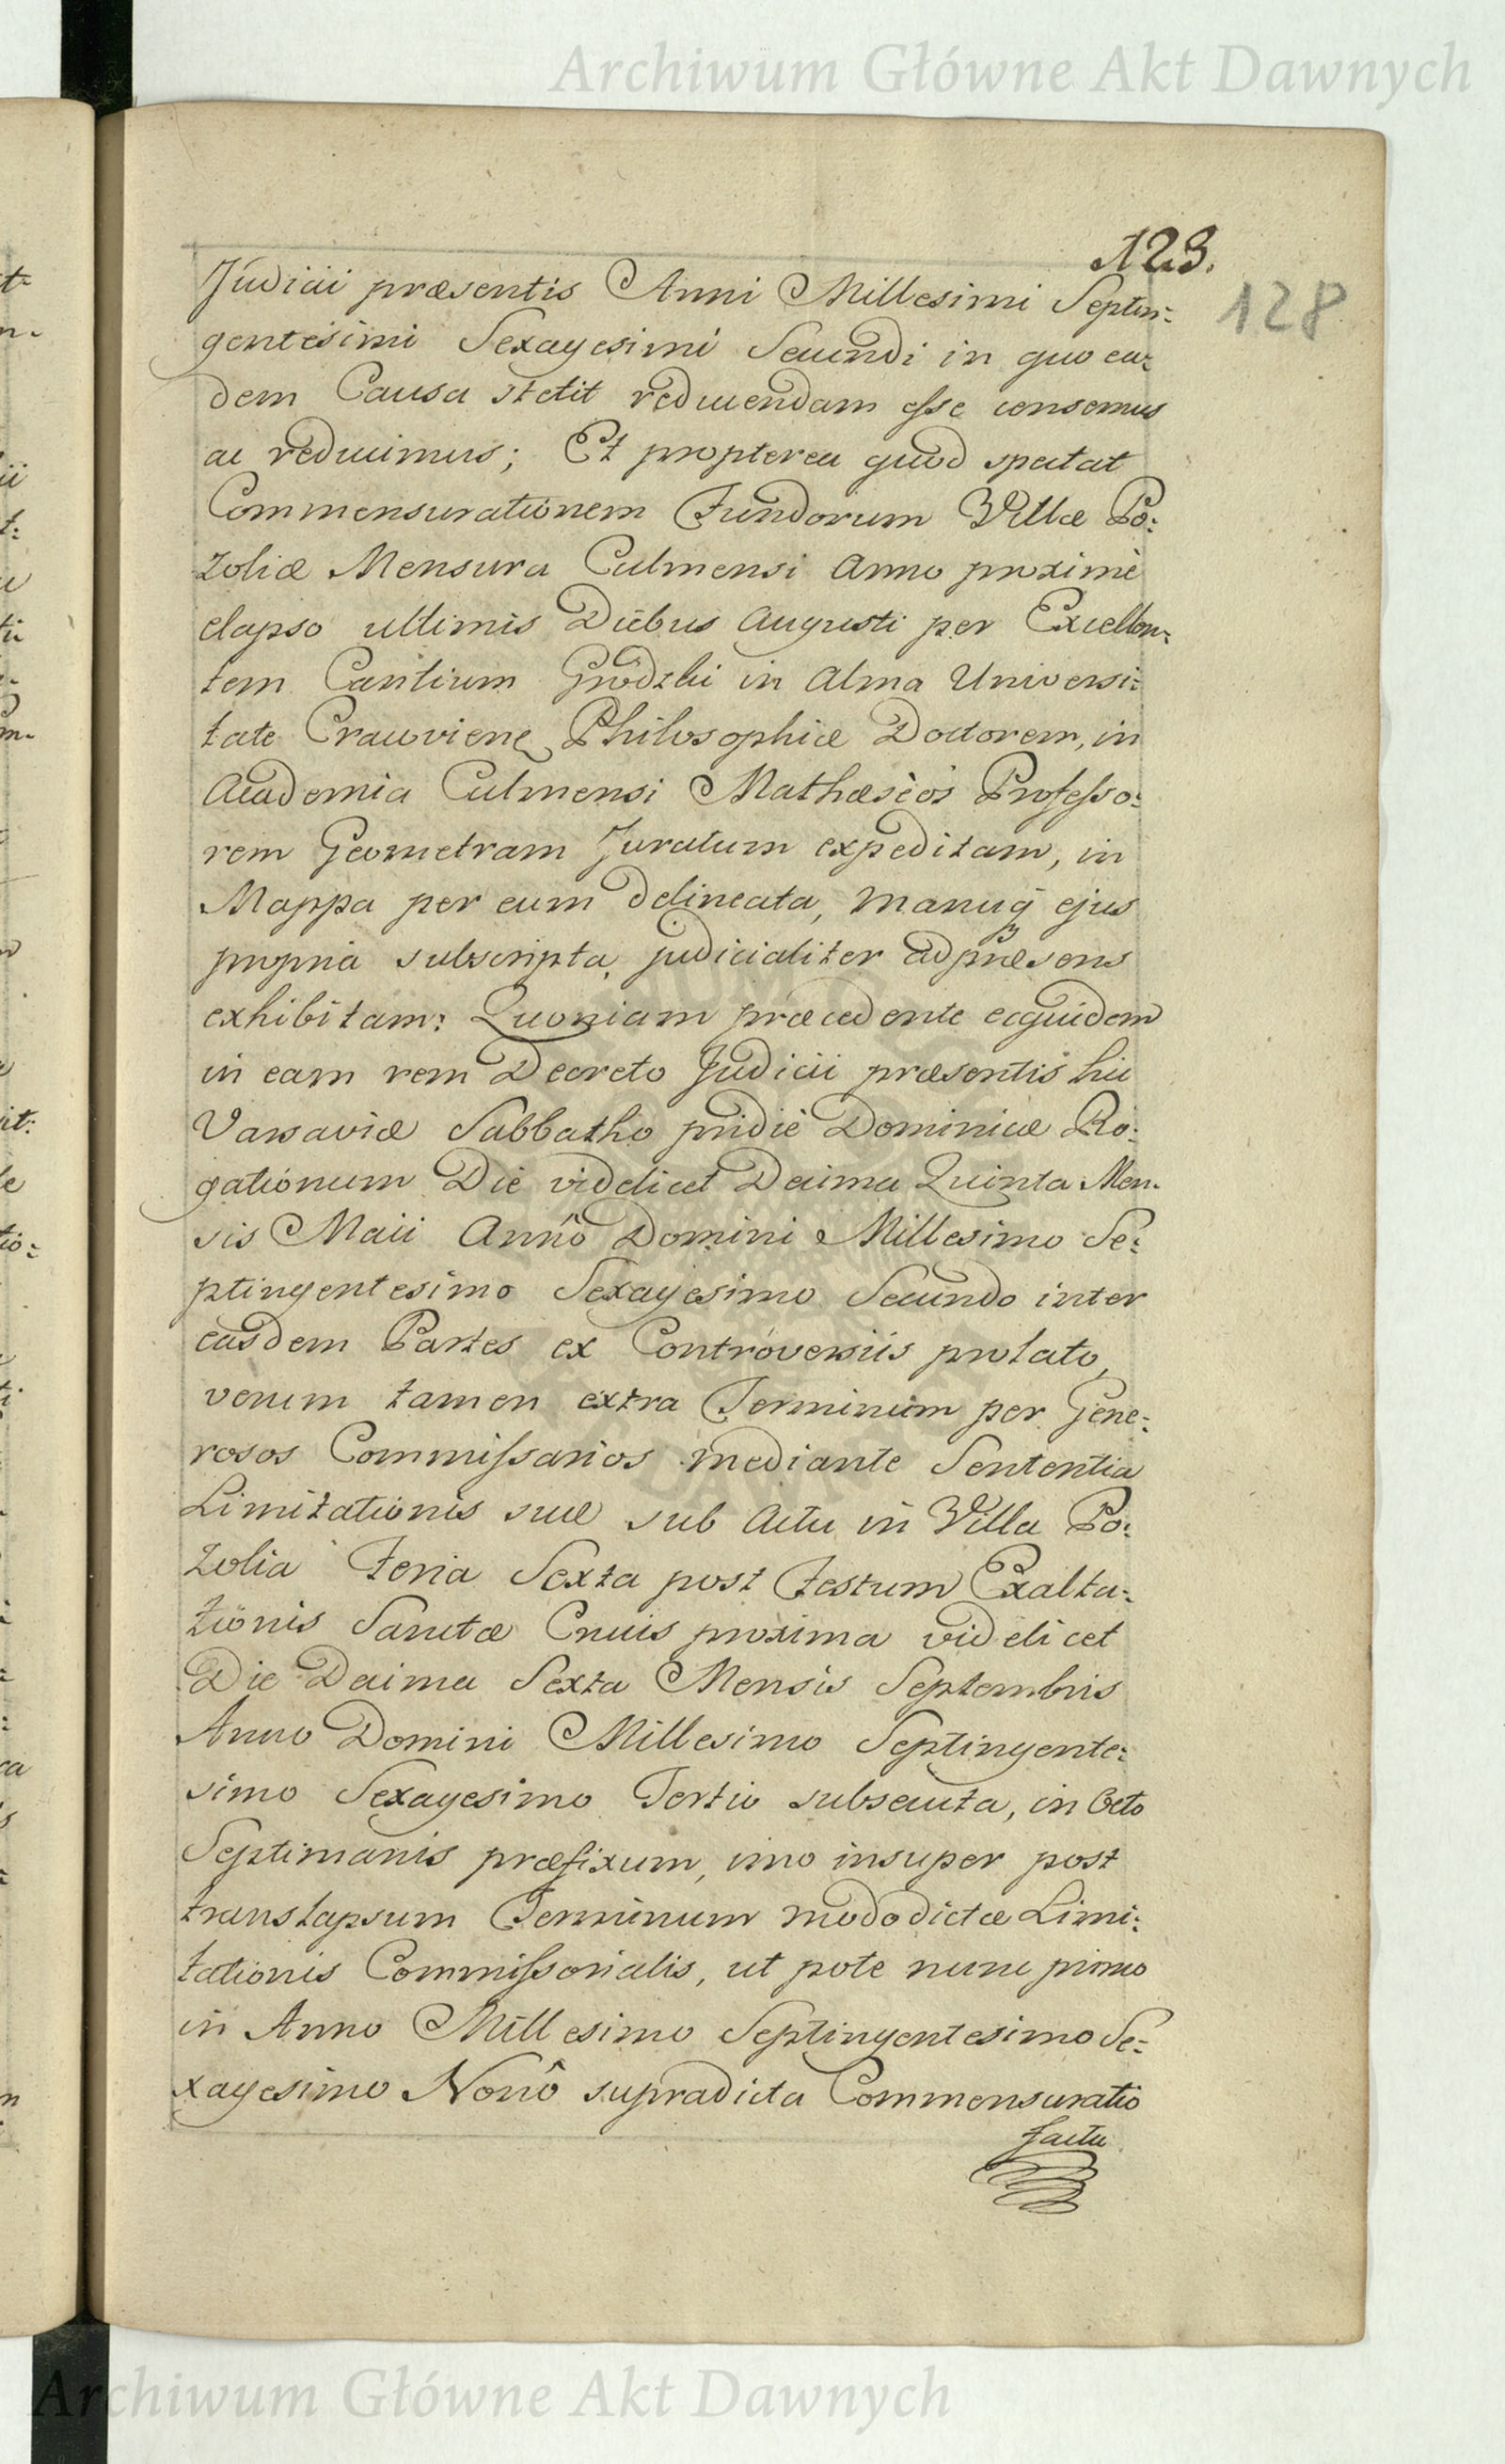 Archiwum Główne Akt Dawnych
123.
128
Judicii præsentis Anni Millesimi Septin:
gentesimi Sexagesimi Secundi in quo ea:
dem Causa stetit reducendam esse censemus
ac reducimus; Et propterea quod spectat
Commensurationem Fundorum Villæ Po:
zoliæ Mensura Culmensi Anno proximè
elapso ultimis Diebus Augusti per Excellen:
tem Cantium Grodzki in Alma Universi:
tate Cracoviens Philosophiæ Doctorem, in
Academia Culmensi Mathæseos Professo:
rem Geometram Juratum expeditam, in
Mappa per eum delineata, manuq ejus
propria subscripta, judicialiter ad præsens
exhibitam: Quoniam præcedente equidem
in eam rem Decreto Judicii præsentis hic
Varsaviæ Sabbatho pridie Dominicæ Ro:
gationum Die videlicet Decima Quinta Men:
sis Maii Annô Domini Millesimo Se:
ptingentesimo Sexagesimo Secundo inter
easdem Partes ex Controversiis prolato,
verum tamen extra Terminum per Gene:
rosos Commissarios mediante Sententia
Limitationis suæ sub Actu in Villa Po:
zolia Feria Sexta post Festum Exalta:
tionis Sanctæ Crucis proxima videlicet
Die Decima Sexta Mensis Septembris
Anno Domini Millesimo Septingente:
simo Sexagesimo Tertio subsecuta, in Octo
Septimanis præfixum, imo insuper post
translapsum Terminum modo dictæ Limi:
tationis Commissorialis, ut pote nunc primo
in Anno Millesimo Septingentesimo Se:
xagesimo Nonô supradicta Commensuratio
facta
Archiwum Główne Akt Dawnych